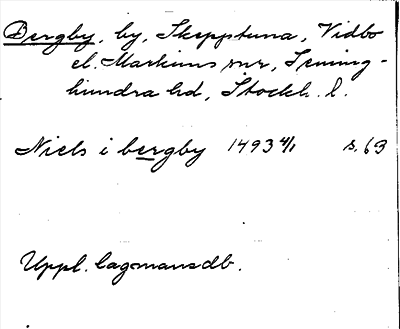 Bergby, by, Skepptuna, Vidbo
el. Markims snr, Seming-
hundra hd, Stockh. l.
Niels i bergby 1493 4/1 s. 63
Uppl. lagmansdb.